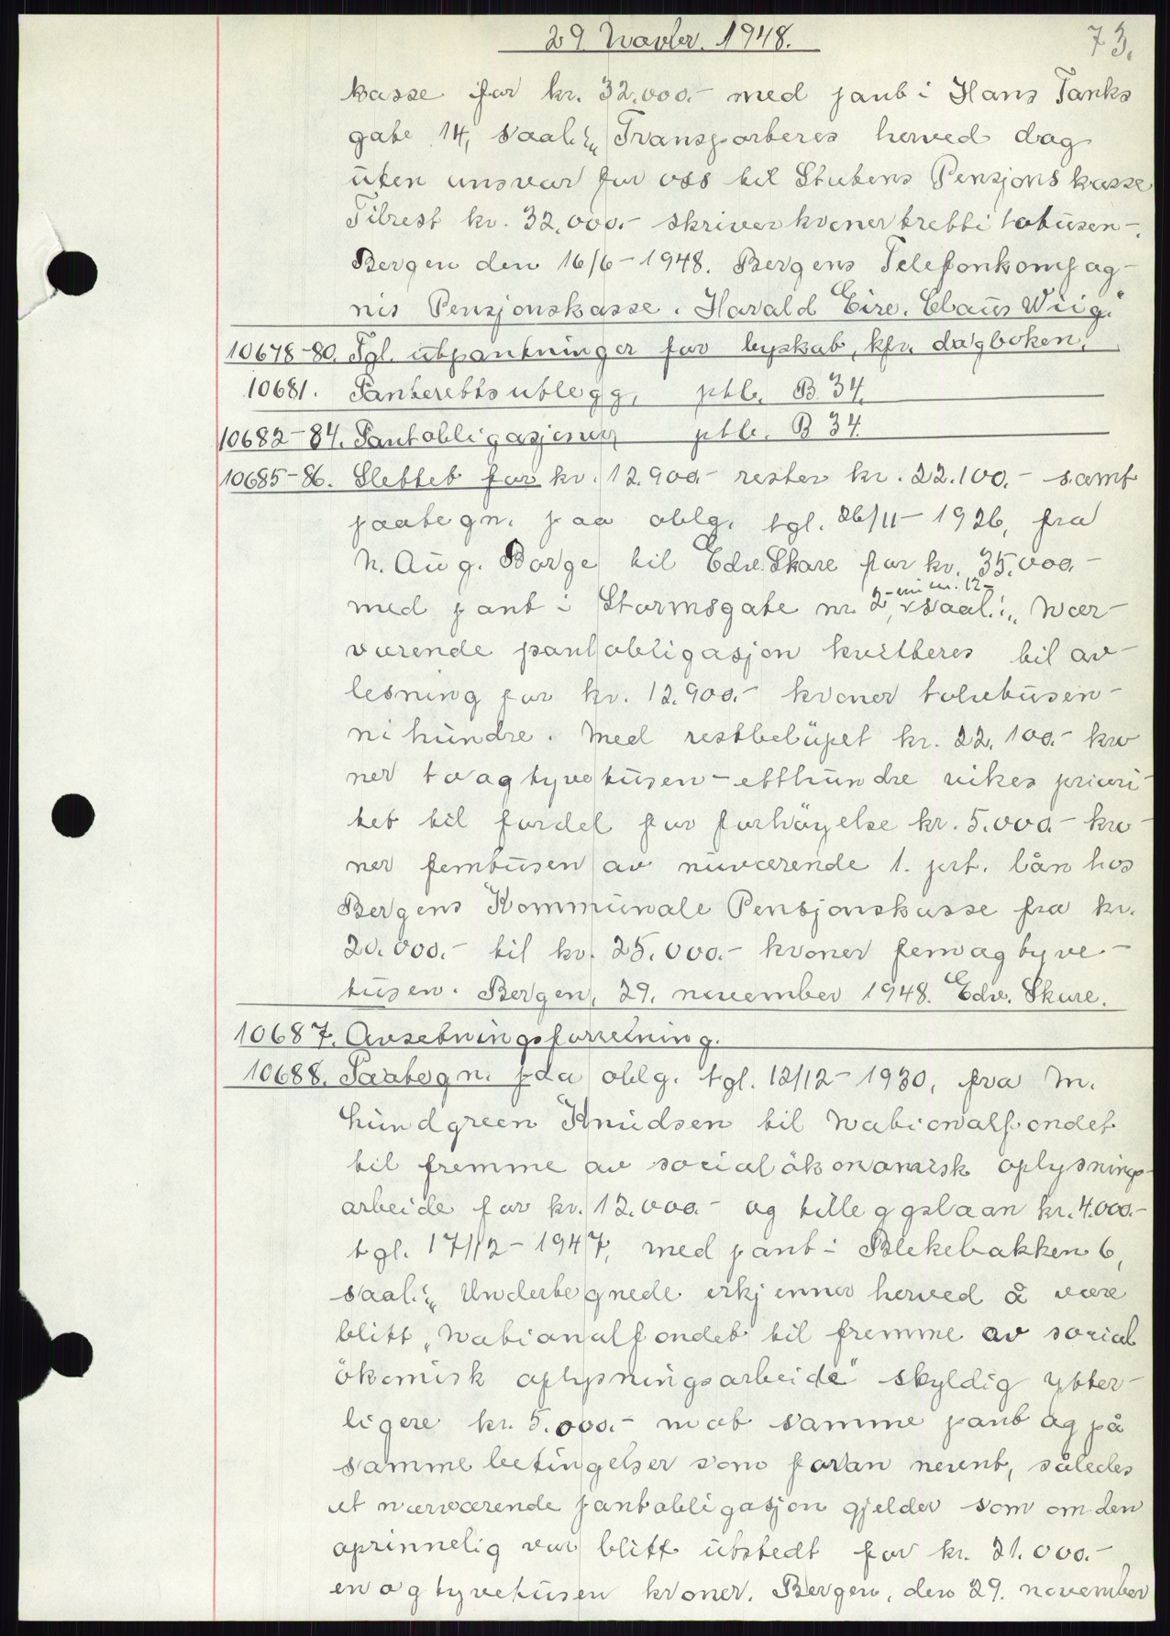 29 Novbr. 1948.
73.
kasse for kr. 32.000.- med pant i Hans Tanks
gate 14, saal.: „Transporteres herved dag
uten ansvar for oss til Statens Pensjonskasse
Tilrest kr. 32.000.- skriver kroner trettitotusen-.
Bergen den 16/6-1948. Bergens Telefonkompag-
nis Pensjonskasse. Harald Eire. Claus Wiig."
10678-80. Tgl. utpantninger for byskat, kfr. dagboken.
10681. Panteretts utlegg, ptb. B 34.
10682-84. Pantobligasjoner ptb. B 34.
10685-86. Slettet for kr. 12.900.- rester kr. 22.100.- samt
paategn. paa oblg. tgl. 26/11-1926, fra
N. Aug. Borge til Edv. Skare for kr. 35.000.-
med pant i Stormsgate nr. 2, - mnr. 12 - saal.: „Nær-
værende pantobligasjon kvitteres til av-
lesning for kr. 12.900.- kroner tolvtusen-
nihundre. Med restbelüpet kr. 22.100.- kro-
ner toogtyvetusen-etthundre vikes priori-
tet til fordel for forhöyelse kr. 5.000.- kro-
ner femtusen av nuværende 1. prt. lån hos
Bergens Kommunale Pensjonskasse fra kr.
20.000.- til kr. 25.000.- kroner femogtyve-
tusen. Bergen, 29. november 1948. Edv. Skare.
10687. Avsetningsforretning.
10688. Paategn. paa oblg. tgl. 12/12-1930, fra M.
Lundgreen Knudsen til Nationalfondet
til fremme av socialökonomisk oplysnings-
arbeide for kr. 12.000.- og tilleggslaan kr. 4.000.-
tgl. 17/12-1947, med pant i Blekebakken 6,
saal.: „Undertegnede erkjenner herved å være
blitt „Nationalfondet til fremme av social
ökomisk oplysningsarbeide" skyldig ytter-
ligere kr. 5.000.- mot samme pant og på
samme betingelser som foran nevnt, således
at nærværende pantobligasjon gjelder som om den
oprinnelig var blitt utstedt for kr. 21.000.-
enogtyvetusen kroner. Bergen, den 29. november